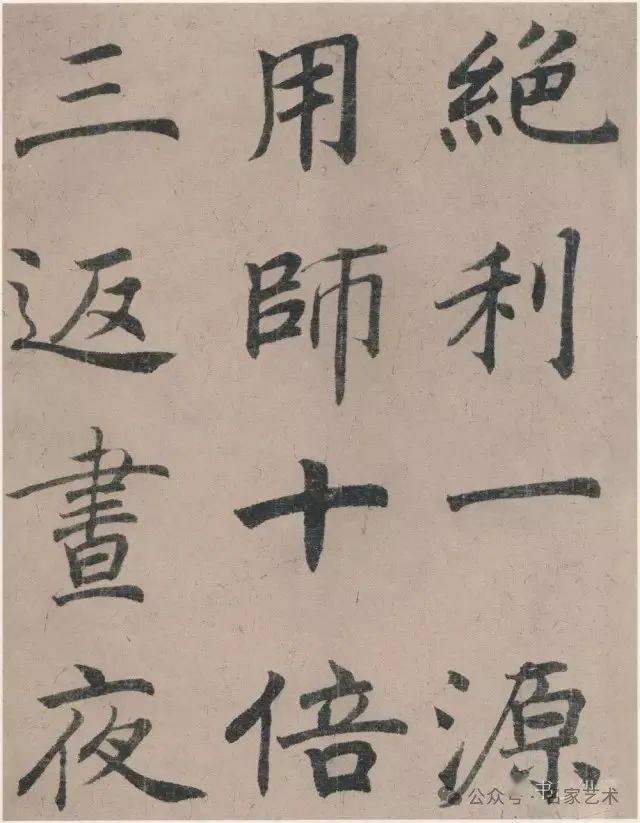 絶利一源
用師十倍
三返晝夜
公众号·名家艺术